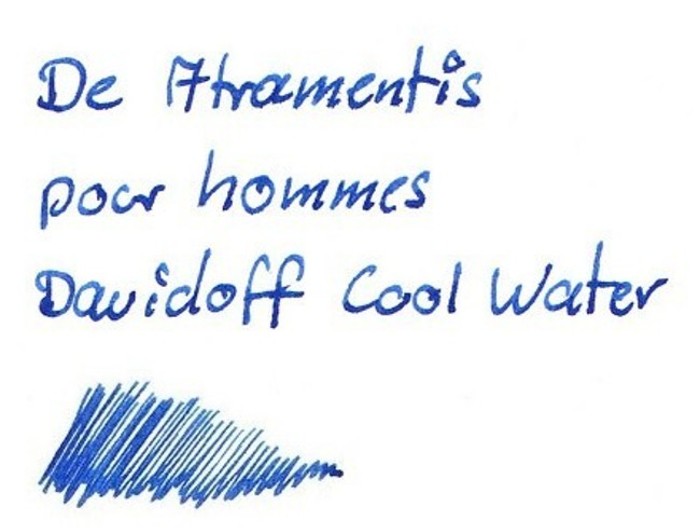 De Atramentis
pour hommes
Davidoff Cool Water